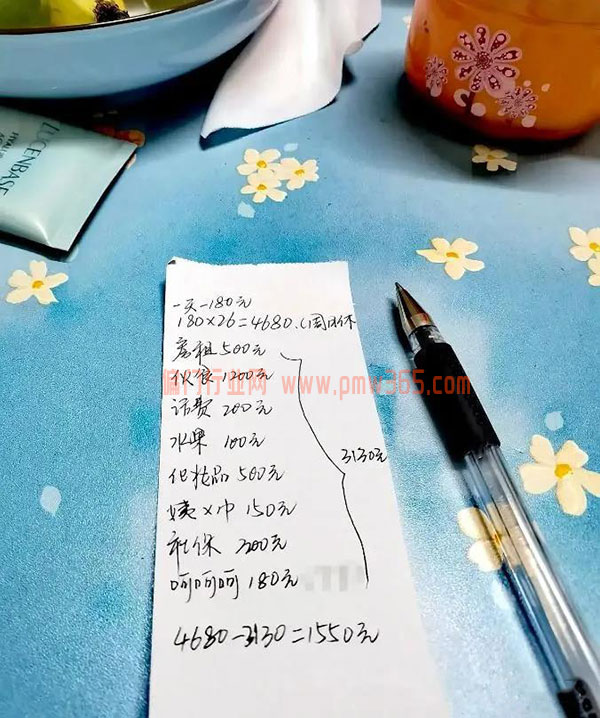 LUCENBASE
一天一180元
180×26=4680.(周日休
房租 500元
伙食 1200元
偏门行业网 www.pmw365.com
话费 200元
水果 100元
3130元
化妆品 500元
姨×巾 150元
社保 300元
呵呵呵 180元
4680-3130=1550元